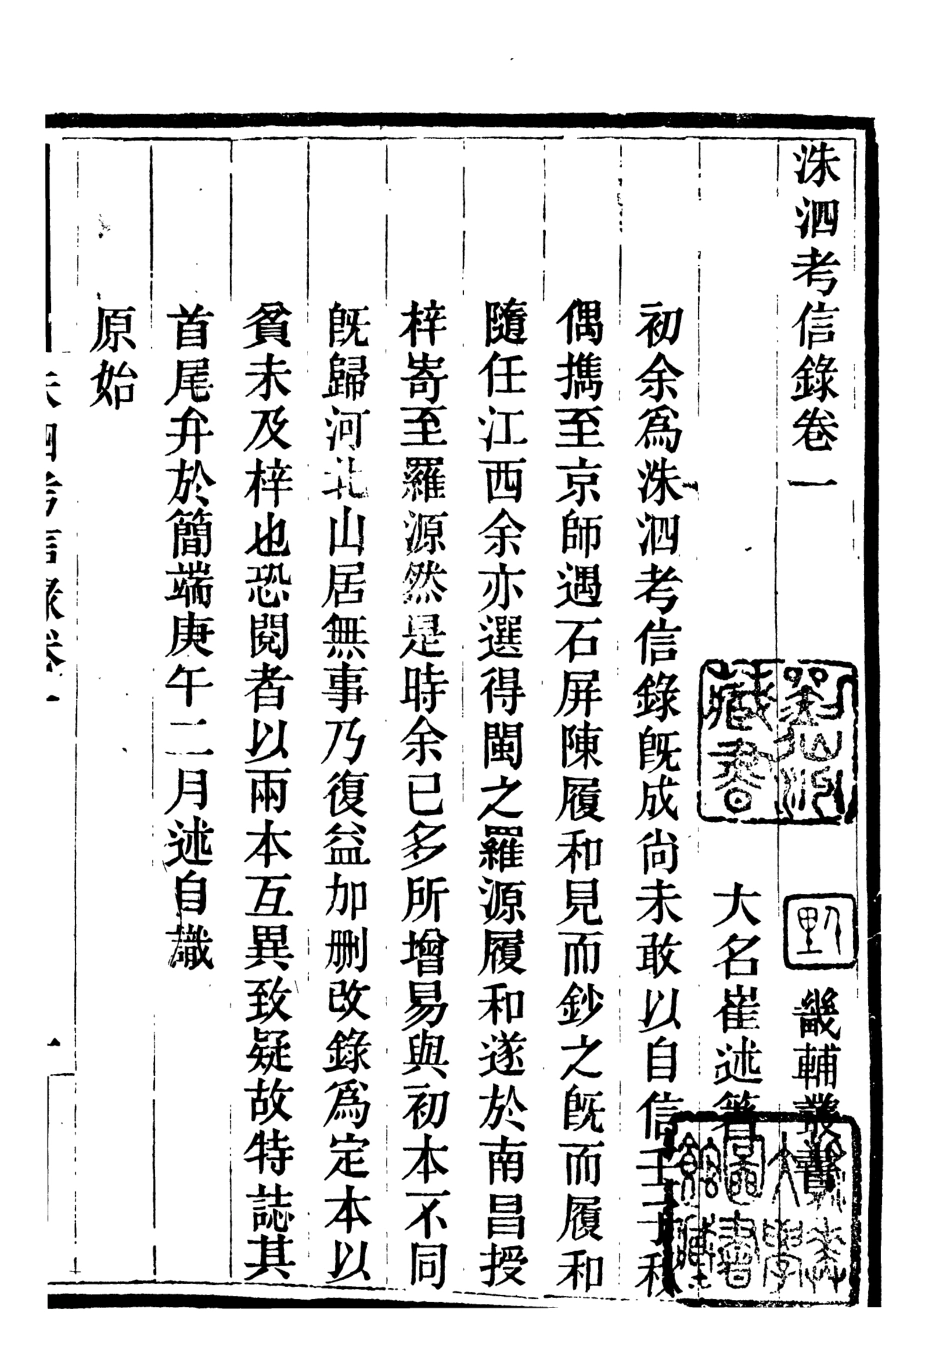 洙泗考信錄卷一
畿輔叢書
大名崔述著
初余爲洙泗考信錄旣成尙未敢以自信壬子秋
偶攜至京師遇石屏陳履和見而鈔之旣而履和
隨任江西余亦選得閩之羅源履和遂於南昌授
梓寄至羅源然是時余已多所增易與初本不同
旣歸河北山居無事乃復益加刪改錄爲定本以
貧未及梓也恐閱者以兩本互異致疑故特誌其
首尾弁於簡端庚午二月述自識
原始
洙泗考信錄卷一
一
藏書
燕京大學圖書館